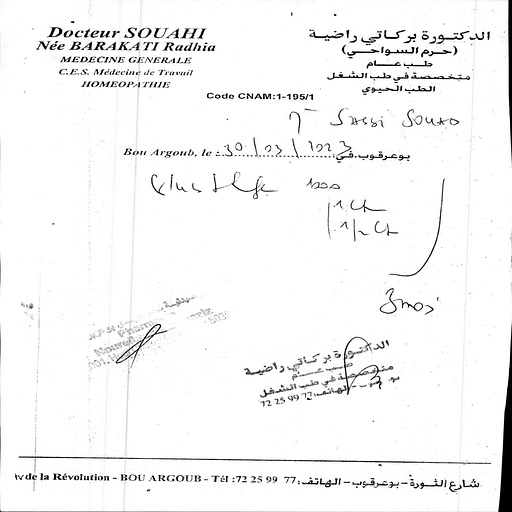 Docteur SOUAHI
Née BARAKATI Radhia
MEDECINE GENERALE
C.E.S. Médecine de Travail
HOMEOPATHIE
الدكتورة بركاتي راضية
(حرم السواحي)
طب عام
متخصصة في طب الشغل
الطب الحيوي
Code CNAM:1-195/1
SASSI SOUAD
Bou Argoub, le : 30/03/2023 بوعرقوب في:
1000
1 cp
1/2 cp
3 mois
الدكتورة بركاتي راضية
طب عام
متخصصة في طب الشغل
الهاتف: 72 25 99 77
de la Révolution - BOU ARGOUB - Tél :72 25 99 77 شارع الثورة - بوعرقوب - الهاتف: